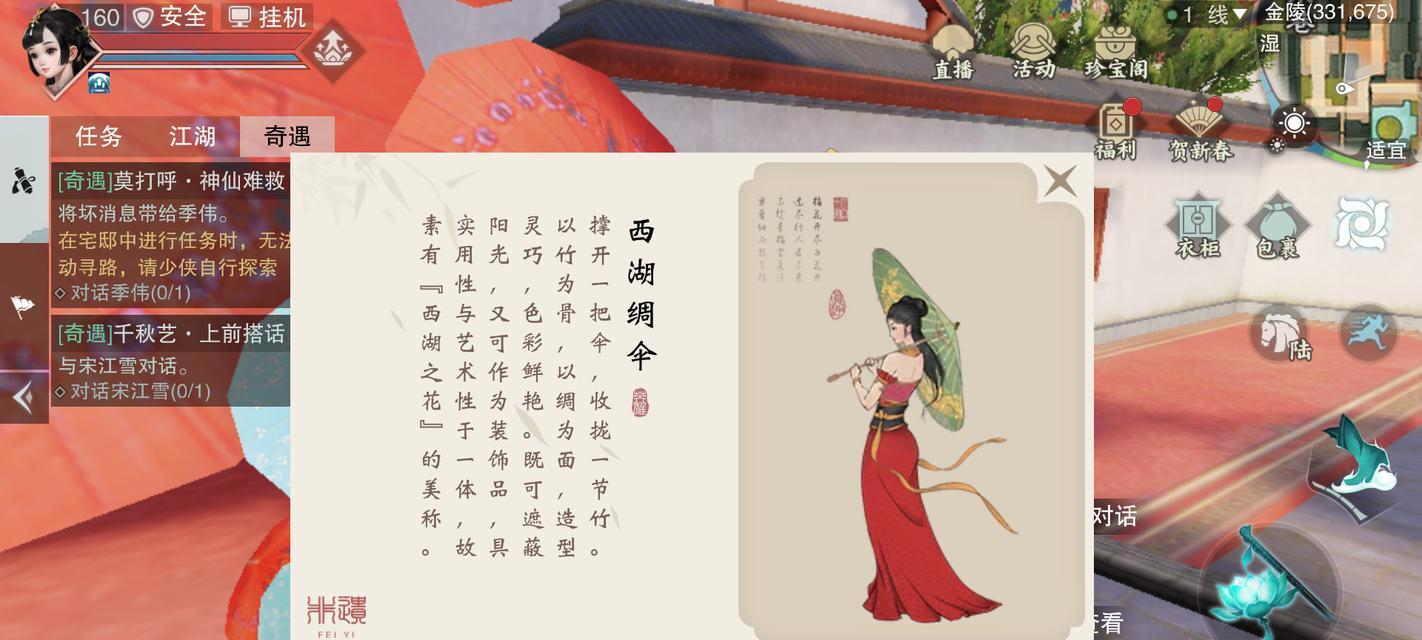 160
安全
挂机
直播
活动
珍宝阁
1 线
金陵(331,675)
湿
福利
贺新春
适宜
任务
江湖
奇遇
[奇遇]莫打呼·神仙难救
将坏消息带给季伟。
在宅邸中进行任务时，无法
动寻路，请少侠自行探索
对话季伟(0/1)
[奇遇]千秋艺·上前搭话
与宋江雪对话。
对话宋江雪(0/1)
西湖绸伞
撑开一把伞，收拢一节竹。
以竹为骨，以绸为面，造型
灵巧，色彩鲜艳。既可遮蔽
阳光，又可作为装饰品，具
实用性与艺术性于一体，故
素有『西湖之花』的美称。
非遗
FEI YI
衣柜
包裹
陆
对话
查看